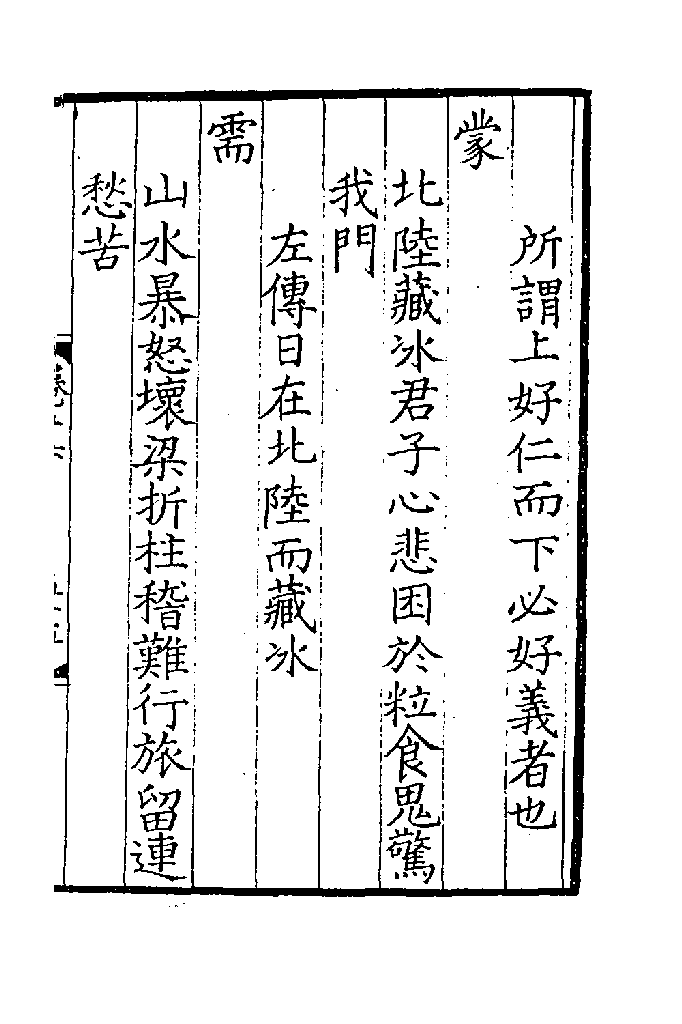 所謂上好仁而下必好義者也
蒙
北陸藏冰君子心悲困於粒食鬼驚
我門
左傳日在北陸而藏冰
需
山水暴怒壞梁折柱稽難行旅留連
愁苦